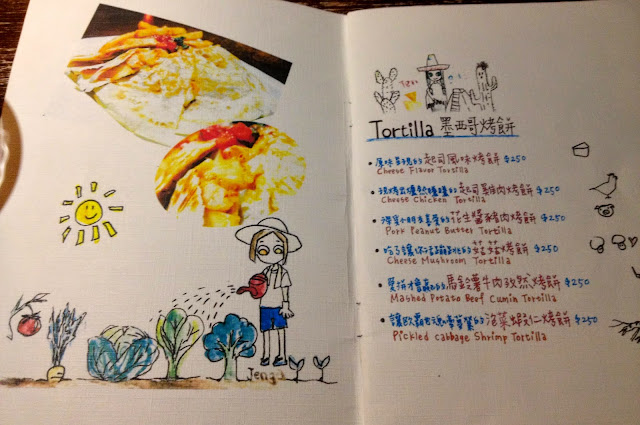 Jenga
Tortilla 墨西哥烤餅
原味呈現的起司風味烤餅 $250
Cheese Flavor Torsilla
起司雞肉烤餅 $250
Cheese Chicken Tortilla
花生醬豬肉烤餅 $250
Pork Peanut Butter Tortilla
菇菇烤餅 $250
Cheese Mushroom Tortilla
馬鈴薯牛肉孜然烤餅 $250
Mashed Potato Beef Cumin Tortilla
泡菜蝦仁烤餅 $250
Pickled cabbage Shrimp Tortilla